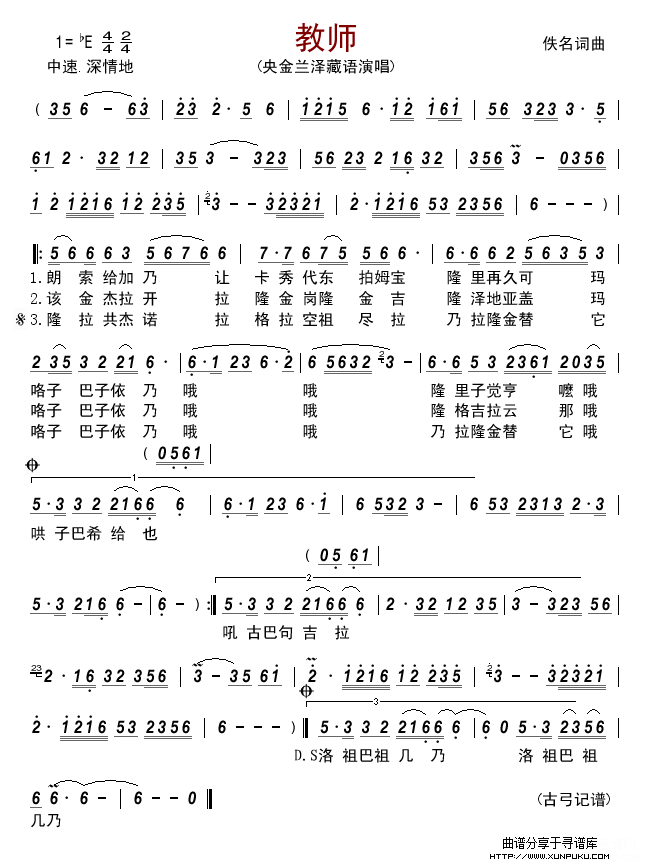 教师
1=♭E 4/4 2/4
佚名词曲
中速.深情地
(央金兰泽藏语演唱)
( 3 5 6 - 6 3 | 2 3 2 · 5 6 | 1 2 1 5 6 · 1 2 1 6 1 | 5 6 3 2 3 3 · 5 |
6 1 2 · 3 2 1 2 | 3 5 3 - 3 2 3 | 5 6 2 3 2 1 6 3 2 | 3 5 6 3 - 0 3 5 6 |
1 2 1 2 1 6 1 2 2 3 5 | 2 3 - - 3 2 3 2 1 | 2 · 1 2 1 6 5 3 2 3 5 6 | 6 - - - )
‖: 5 6 6 6 3 5 6 7 6 6 | 7 · 7 6 7 5 5 6 6 · | 6 · 6 6 2 5 6 3 5 3 |
1.朗 索 给加 乃 让 卡 秀 代东 拍姆宝 隆 里再久可 玛
2.该 金 杰拉 开 拉 隆 金 岗隆 金 吉 隆 泽地亚盖 玛
※3.隆 拉 共杰 诺 拉 格 拉 空祖 尽 拉 乃 拉隆金替 它
2 3 5 3 2 2 1 6 · | 6 · 1 2 3 6 · 2 | 6 5 6 3 2 2 3 - | 6 · 6 5 3 2 3 6 1 2 0 3 5 |
咯子 巴子侬 乃 哦 哦 隆 里子觉亨 嚒 哦
咯子 巴子侬 乃 哦 哦 隆 格吉拉云 那 哦
咯子 巴子侬 乃 哦 哦 乃 拉隆金替 它 哦
( 0 5 6 1 |
1
5 · 3 3 2 2 1 6 6 6 | 6 · 1 2 3 6 · 1 | 6 5 3 2 3 - | 6 5 3 2 3 1 3 2 · 3 |
哄 子巴希 给 也
( 0 5 6 1 |
2
5 · 3 2 1 6 6 - | 6 - ) :‖ 5 · 3 3 2 2 1 6 6 6 | 2 · 3 2 1 2 3 5 | 3 - 3 2 3 5 6 |
吼 古巴句 吉 拉
23 2 · 1 6 3 2 3 5 6 | 3 - 3 5 6 1 | 2 · 1 2 1 6 1 2 2 3 5 | 2 3 - - 3 2 3 2 1 |
3
2 · 1 2 1 6 5 3 2 3 5 6 | 6 - - - ) ‖ 5 · 3 3 2 2 1 6 6 6 | 6 0 5 · 3 2 3 5 6 |
D.S洛 祖巴祖 几 乃 洛 祖巴 祖
6 6 · 6 - | 6 - - 0 ‖
(古弓记谱)
几乃
曲谱分享于寻谱库
HTTP://WWW.XUNPUKU.COM